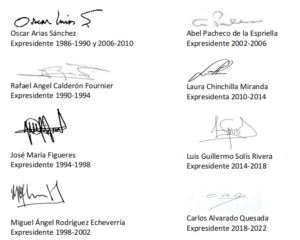 Oscar Arias S
Oscar Arias Sánchez
Expresidente 1986-1990 y 2006-2010
Abel Pacheco de la Espriella
Expresidente 2002-2006
Rafael Angel Calderón Fournier
Expresidente 1990-1994
Laura Chinchilla Miranda
Expresidenta 2010-2014
José María Figueres
Expresidente 1994-1998
Luis Guillermo Solís Rivera
Expresidente 2014-2018
Miguel Ángel Rodríguez Echeverría
Expresidente 1998-2002
Carlos Alvarado Quesada
Expresidente 2018-2022